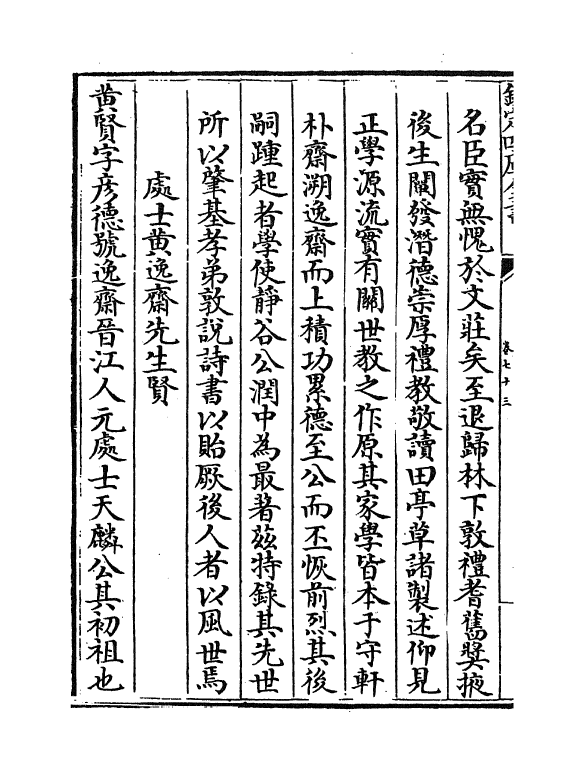 欽定四庫全書
卷七十三
名臣實無愧於文莊矣至退歸林下敦禮耆舊奬掖
後生闡發潛德崇厚禮教敬讀田亭草諸製述仰見
正學源流實有關世教之作原其家學皆本于守軒
朴齋溯逸齋而上積功累德至公而丕恢前烈其後
嗣踵起者學使靜谷公潤中為最著茲特錄其先世
所以肇基孝弟敦說詩書以貽厥後人者以風世焉
處士黄逸齋先生賢
黄賢字彦德號逸齋晉江人元處士天麟公其初祖也